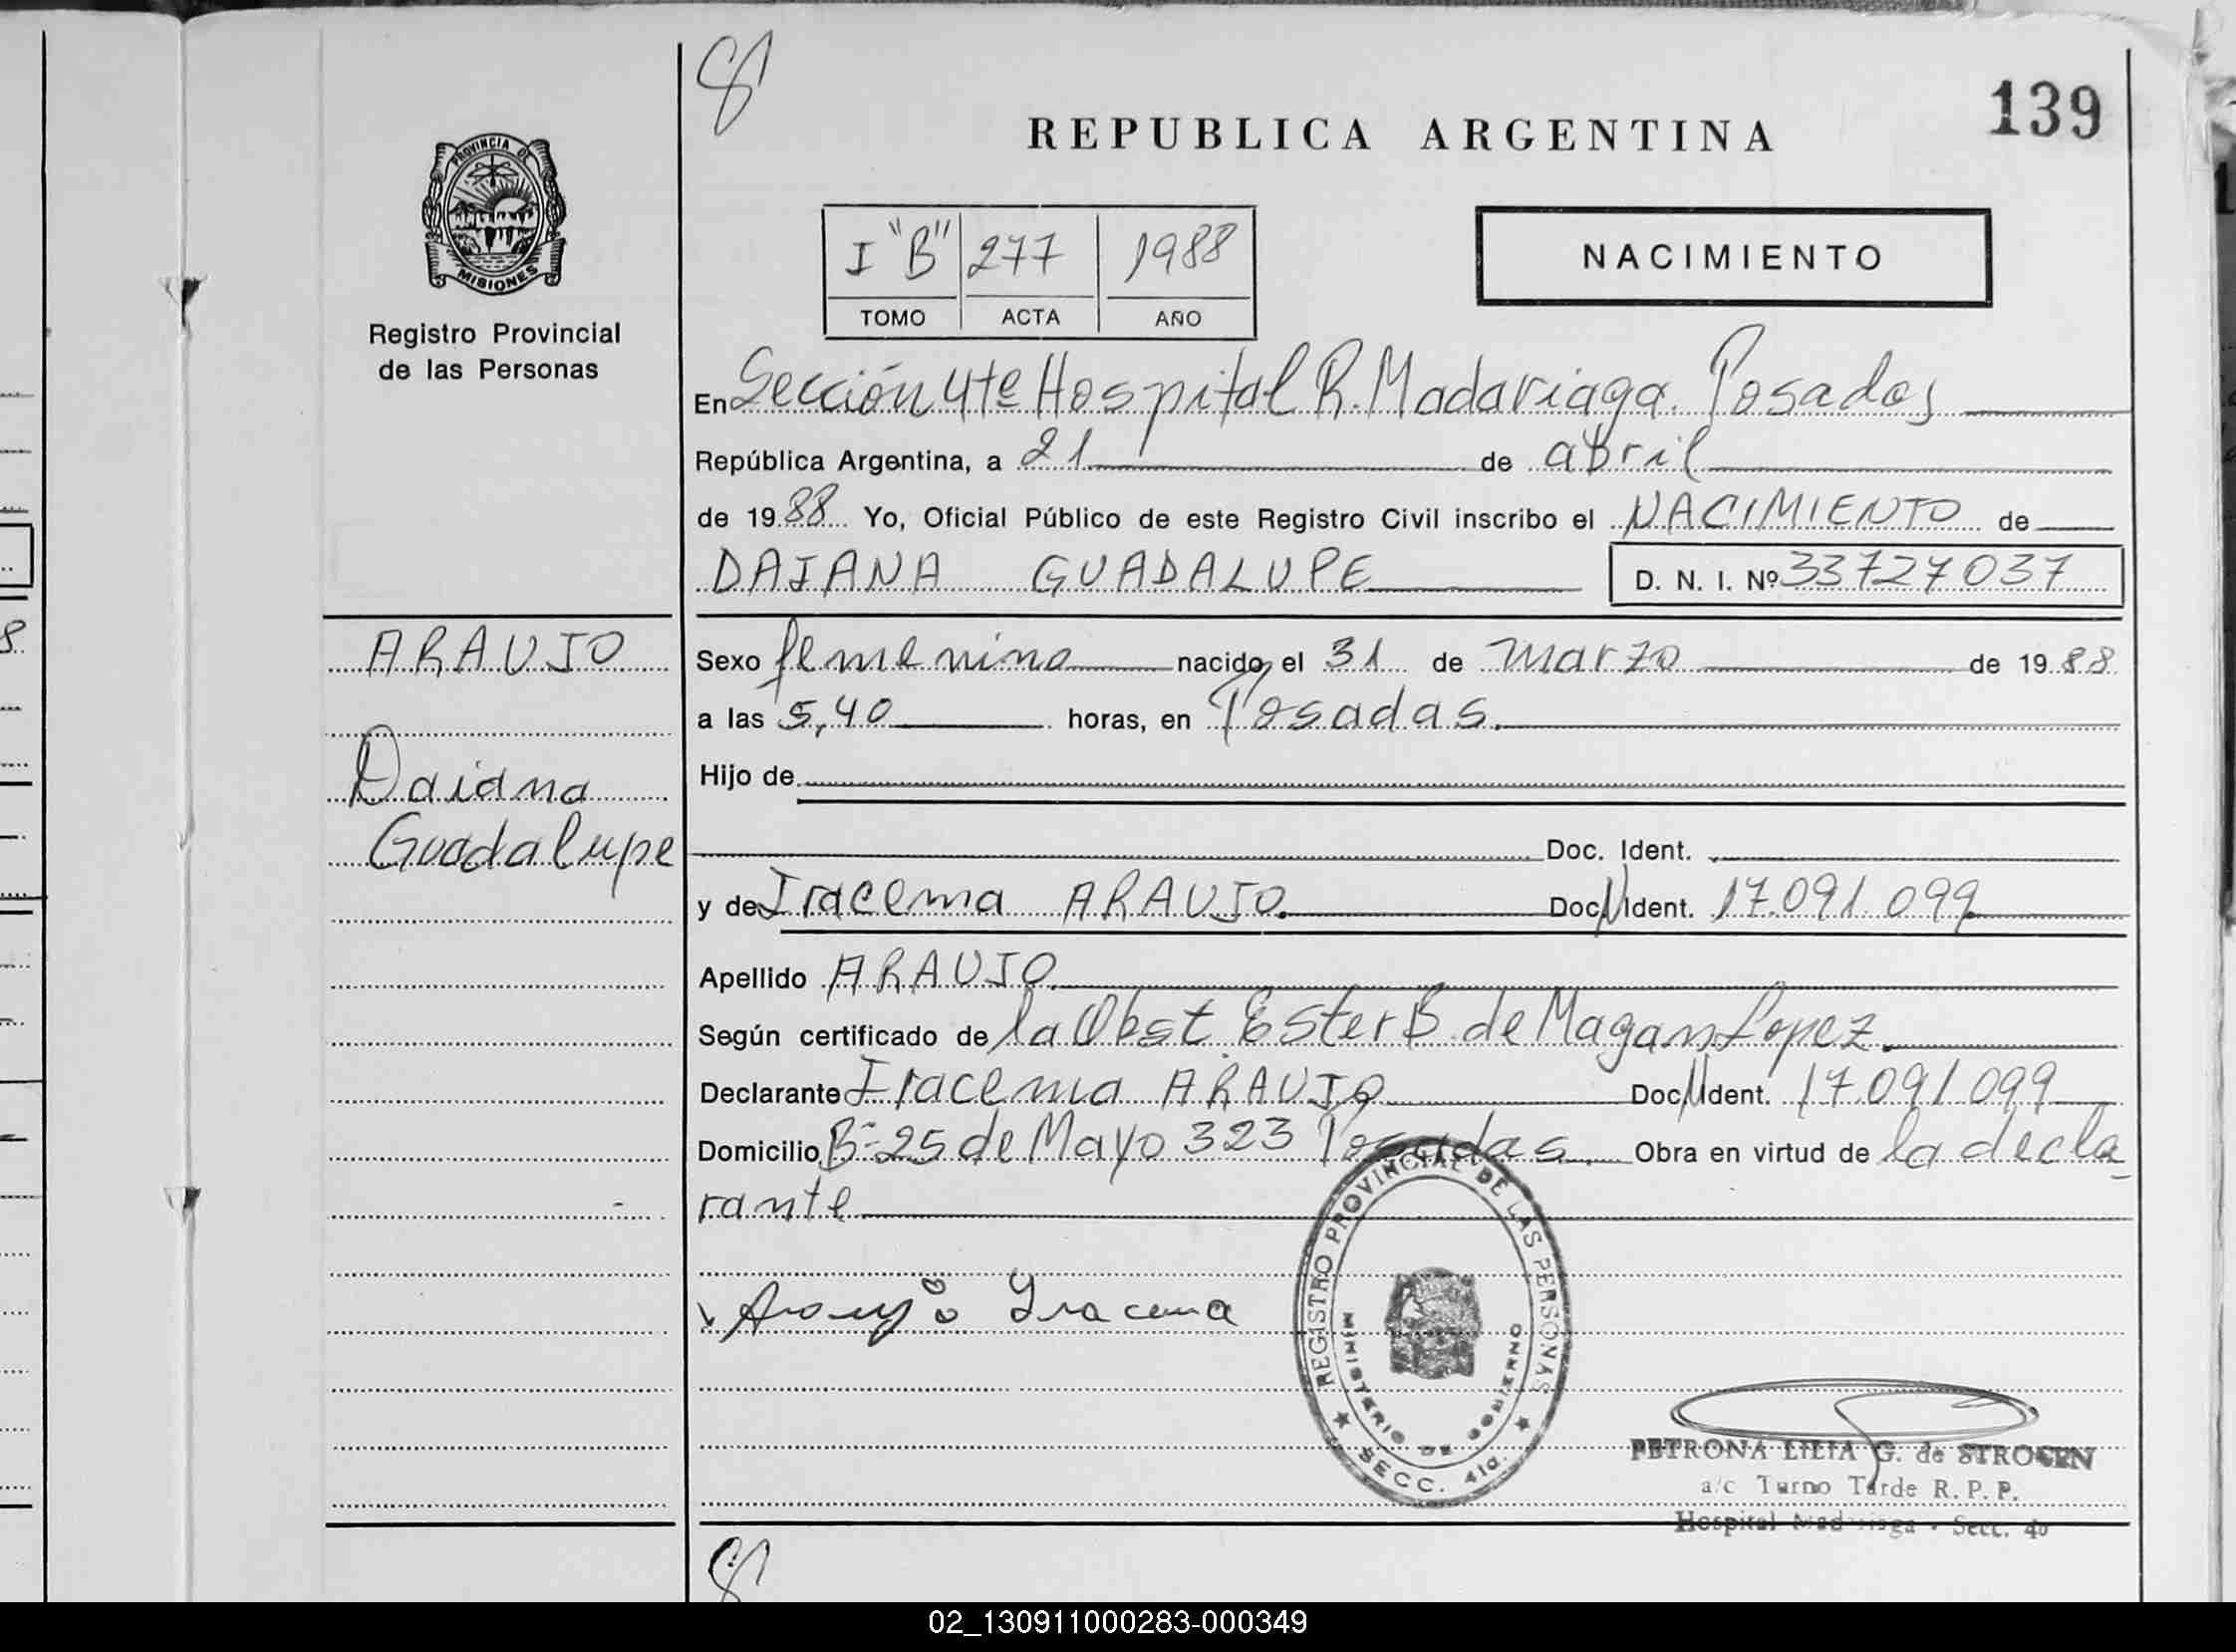 139
REPUBLICA ARGENTINA
PROVINCIA DE
MISIONES
Registro Provincial
de las Personas
I "B" 277 1988
TOMO ACTA AÑO
NACIMIENTO
En Sección 4ta Hospital R. Madariaga. Posadas
República Argentina, a 21 de abril
de 1988 Yo, Oficial Público de este Registro Civil inscribo el NACIMIENTO de
DAIANA GUADALUPE D. N. I. Nº 33727037
ARAUJO
Daiana
Guadalupe
Sexo femenino nacido el 31 de marzo de 1988
a las 5,40 horas, en Posadas.
Hijo de
Doc. Ident.
y de Iracema ARAUJO. Doc. Ident. 17.091.099
Apellido ARAUJO
Según certificado de la Obst. Ester B. de Magan Lopez.
Declarante Iracema ARAUJO Doc. Ident. 17.091.099
Domicilio Bº-25 de Mayo 323 Posadas. Obra en virtud de la decla
rante
Araujo Iracema
REGISTRO PROVINCIAL DE LAS PERSONAS
MINISTERIO DE GOBIERNO
SECC. 4ta.
PETRONA LILIA G. de STROGEN
a/c Turno Tarde R. P. P.
Hospital Madariaga - Secc. 4a
02_130911000283-000349